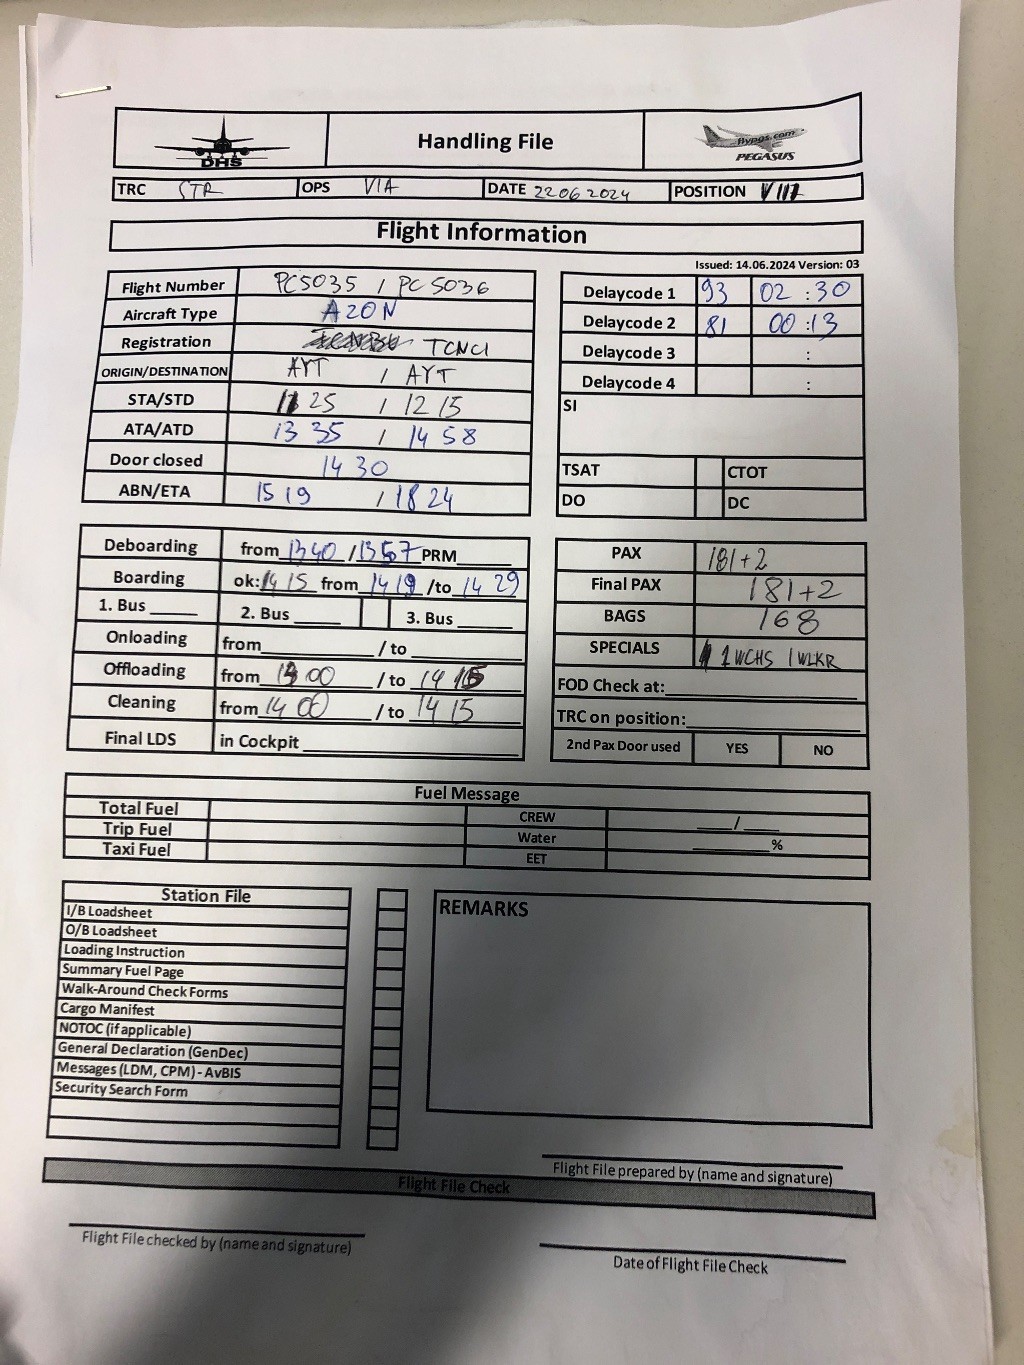 DHS
Handling File
flypgs.com
PEGASUS
TRC STR OPS VIA DATE 22062024 POSITION
Flight Information
Issued: 14.06.2024 Version: 03
Flight Number PC5035 / PC5036
Aircraft Type A20N
Registration TCNCI
ORIGIN/DESTINATION AYT / AYT
STA/STD 1125 / 1215
ATA/ATD 1335 / 1458
Door closed 1430
ABN/ETA 1519 / 1824
Delaycode 1 93 02:30
Delaycode 2 81 00:13
Delaycode 3 :
Delaycode 4 :
SI
TSAT CTOT
DO DC
Deboarding from 1340 / 1357 PRM
Boarding ok: 1415 from 1419 /to 1429
1. Bus 2. Bus 3. Bus
Onloading from / to
Offloading from 1400 / to 1415
Cleaning from 1400 / to 1415
Final LDS in Cockpit
PAX 181+2
Final PAX 181+2
BAGS 168
SPECIALS 1 WCHS 1 WLKR
FOD Check at:
TRC on position:
2nd Pax Door used YES NO
Fuel Message
Total Fuel CREW /
Trip Fuel Water %
Taxi Fuel EET
Station File
I/B Loadsheet
O/B Loadsheet
Loading Instruction
Summary Fuel Page
Walk-Around Check Forms
Cargo Manifest
NOTOC (if applicable)
General Declaration (GenDec)
Messages (LDM, CPM) - AvBIS
Security Search Form
REMARKS
Flight File prepared by (name and signature)
Flight File Check
Flight File checked by (name and signature)
Date of Flight File Check